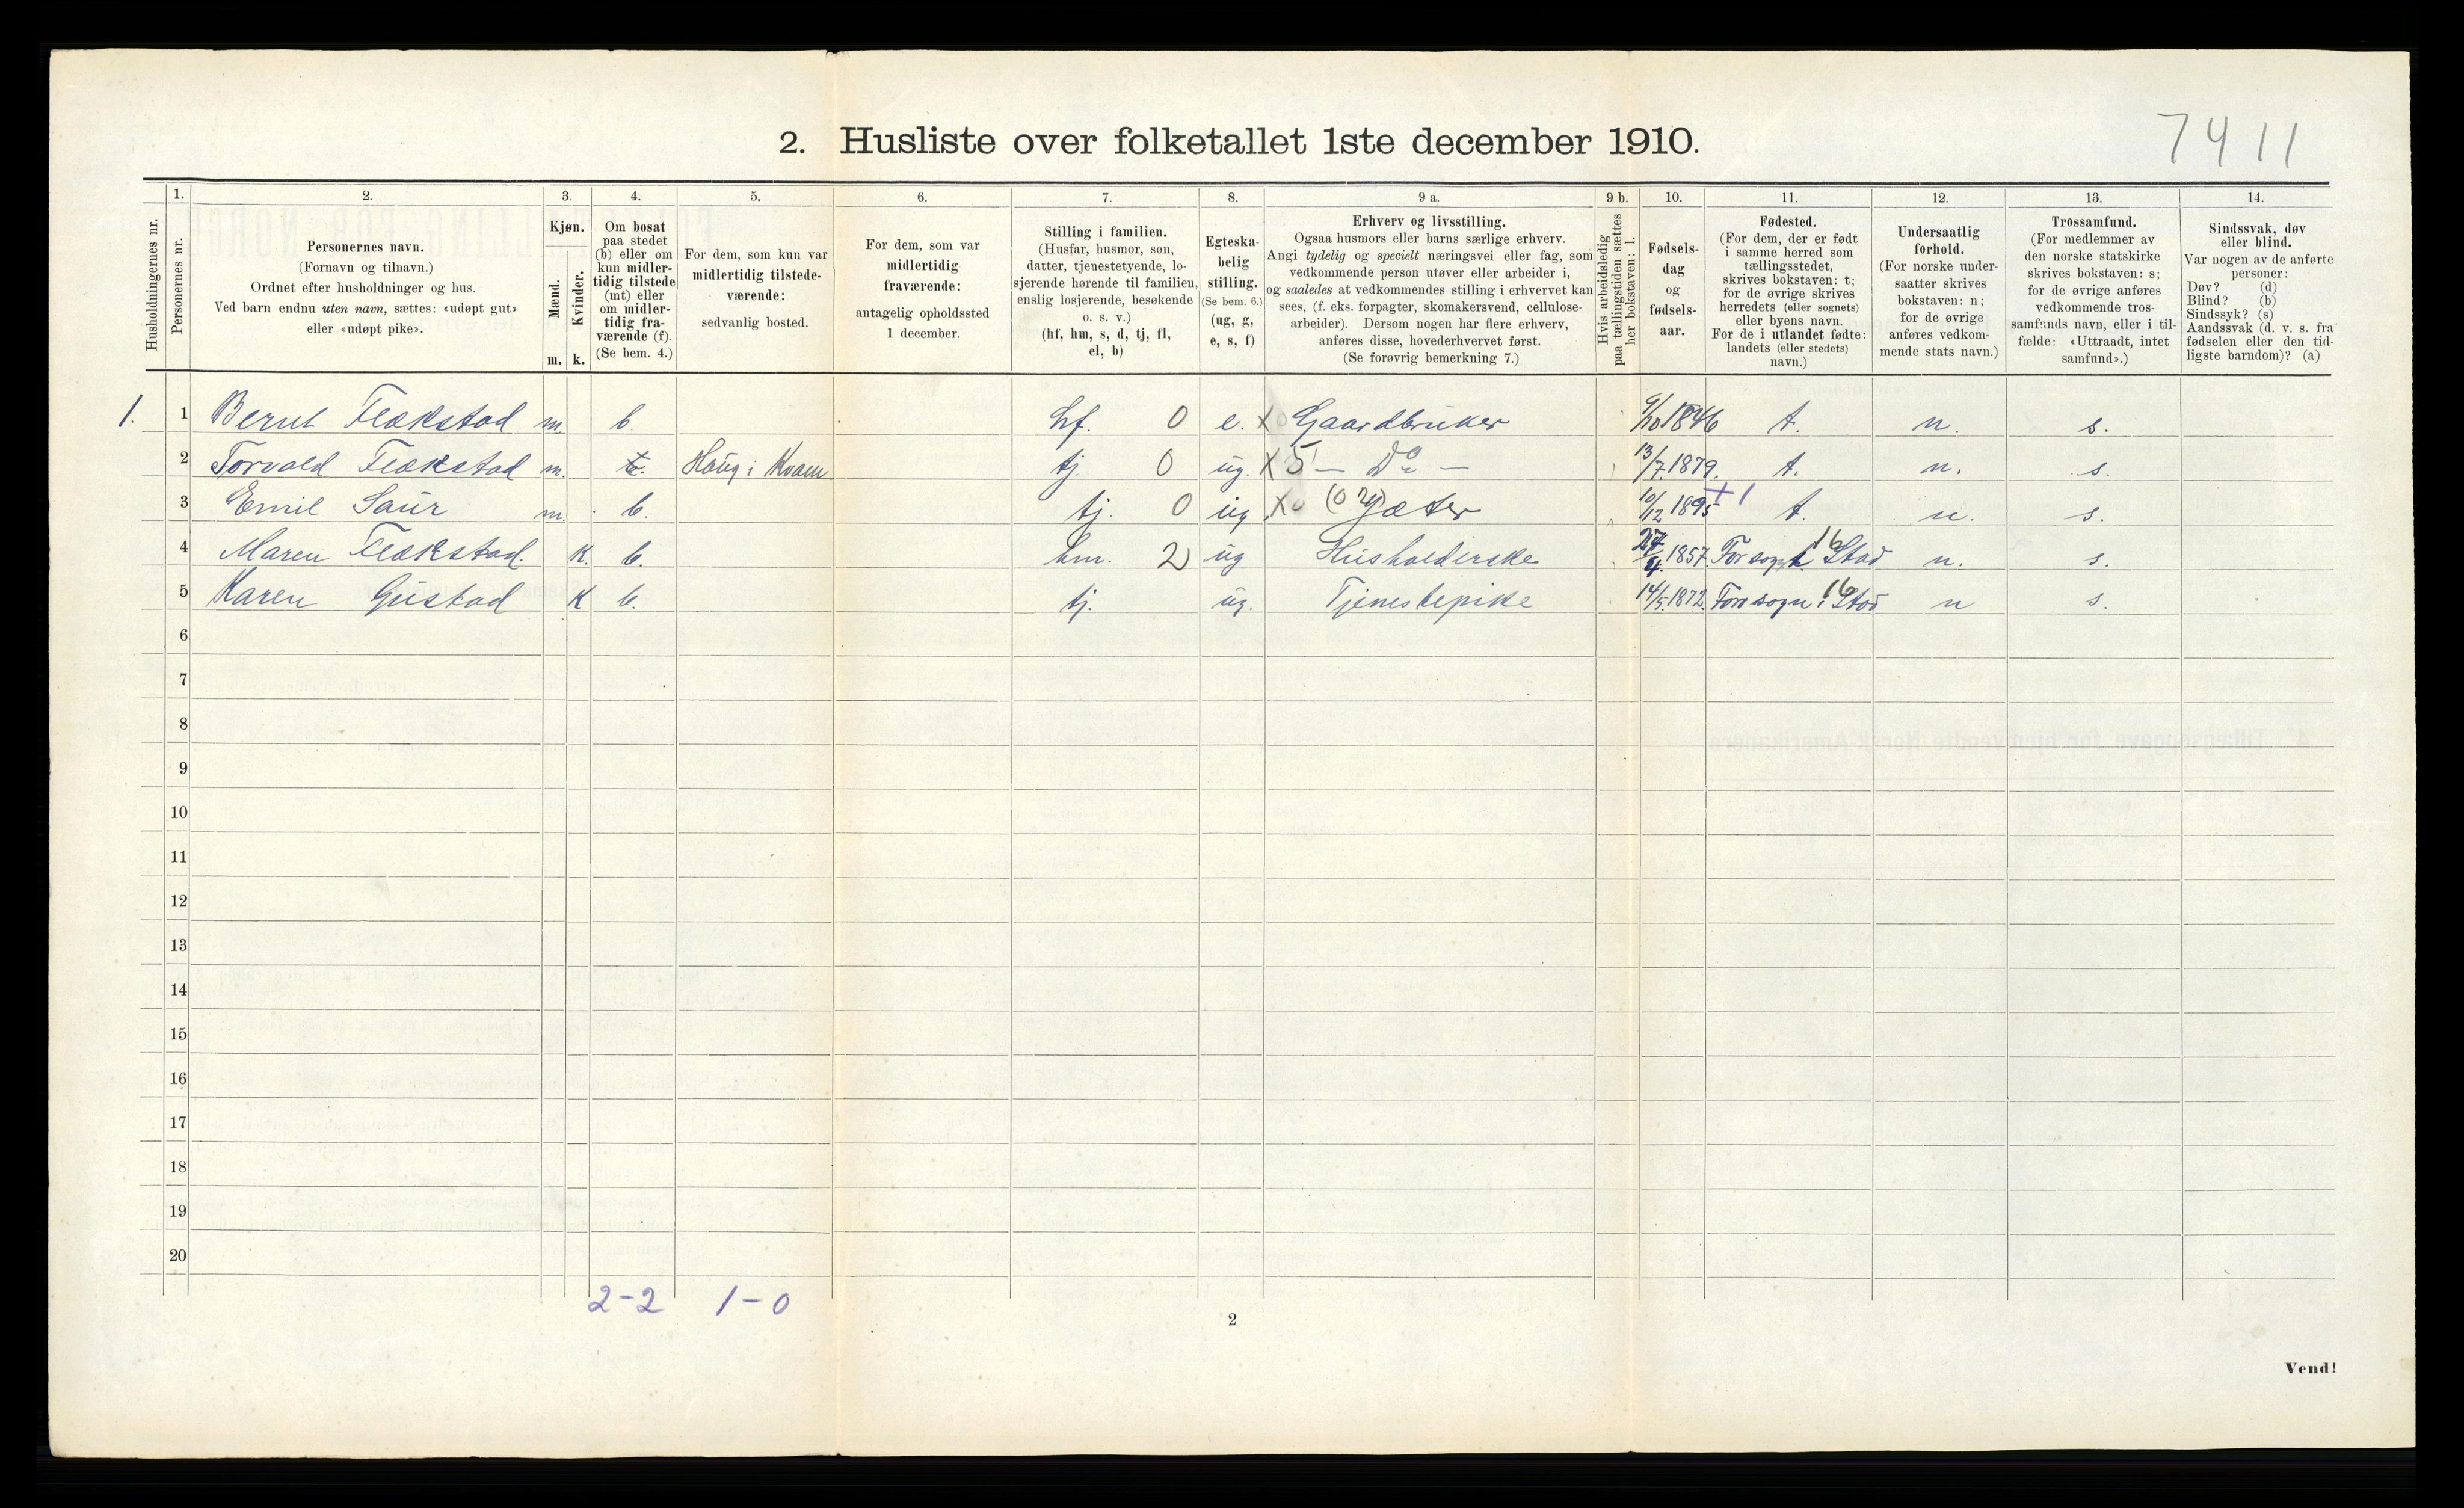 7411
2. Husliste over folketallet 1ste december 1910.
1. 2. 3. 4. 5. 6. 7. 8. 9 a. 9 b. 10. 11. 12. 13. 14.
Husholdningernes nr.
Personernes nr.
Personernes navn.
(Fornavn og tilnavn.)
Ordnet efter husholdninger og hus.
Ved barn endnu uten navn, sættes: «udøpt gut»
eller «udøpt pike».
Kjøn.
Mænd.
Kvinder.
m. k.
Om bosat
paa stedet
(b) eller om
kun midler-
tidig tilstede
(mt) eller
om midler-
tidig fra-
værende (f).
(Se bem. 4.)
For dem, som kun var
midlertidig tilstede-
værende:
sedvanlig bosted.
For dem, som var
midlertidig
fraværende:
antagelig opholdssted
1 december.
Stilling i familien.
(Husfar, husmor, søn,
datter, tjenestetyende, lo-
sjerende hørende til familien,
enslig losjerende, besøkende
o. s. v.)
(hf, hm, s, d, tj, fl,
el, b)
Egteska-
belig
stilling.
(Se bem. 6.)
(ug, g,
e, s, f)
Erhverv og livsstilling.
Ogsaa husmors eller barns særlige erhverv.
Angi tydelig og specielt næringsvei eller fag, som
vedkommende person utøver eller arbeider i,
og saaledes at vedkommendes stilling i erhvervet kan
sees, (f. eks. forpagter, skomakersvend, cellulose-
arbeider). Dersom nogen har flere erhverv,
anføres disse, hovederhvervet først.
(Se forøvrig bemerkning 7.)
Hvis arbeidsledig
paa tællingstiden sættes
her bokstaven: l.
Fødsels-
dag
og
fødsels-
aar.
Fødested.
(For dem, der er født
i samme herred som
tællingsstedet,
skrives bokstaven: t;
for de øvrige skrives
herredets (eller sognets)
eller byens navn.
For de i utlandet fødte:
landets (eller stedets)
navn.)
Undersaatlig
forhold.
(For norske under-
saatter skrives
bokstaven: n;
for de øvrige
anføres vedkom-
mende stats navn.)
Trossamfund.
(For medlemmer av
den norske statskirke
skrives bokstaven: s;
for de øvrige anføres
vedkommende tros-
samfunds navn, eller i til-
fælde: «Uttraadt, intet
samfund».)
Sindssvak, døv
eller blind.
Var nogen av de anførte
personer:
Døv? (d)
Blind? (b)
Sindssyk? (s)
Aandssvak (d. v. s. fra
fødselen eller den tid-
ligste barndom)? (a)
1. 1 Bernt Flækstad m. b. hf. 0 e. x 0 Gaardbruker 9/10 1846 t. n. s.
2 Torvald Flækstad m. Haug i Kvam tj. 0 ug. x 5 — Do — 13/7 1879. t. n. s.
3 Emil Saur m. b. tj. 0 ug. x 0 Gjæter 10/12 1895 +1 t. n. s.
4 Maren Flækstad. k. b. hm. 2 ug Husholderske 27/4 1857. For sogn i Stod 16 n. s.
5 Karen Gustad k b. tj. ug. Tjenestepike 14/5 1872. For sogn i Stod 16 n s.
6
7
8
9
10
11
12
13
14
15
16
17
18
19
20
2-2 1-0
2
Vend!